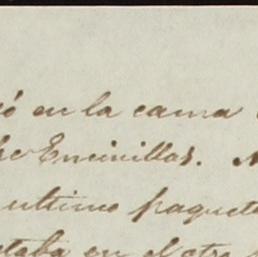 ó en la cama
Encinillas.
ultimo paquete
taba en el otro